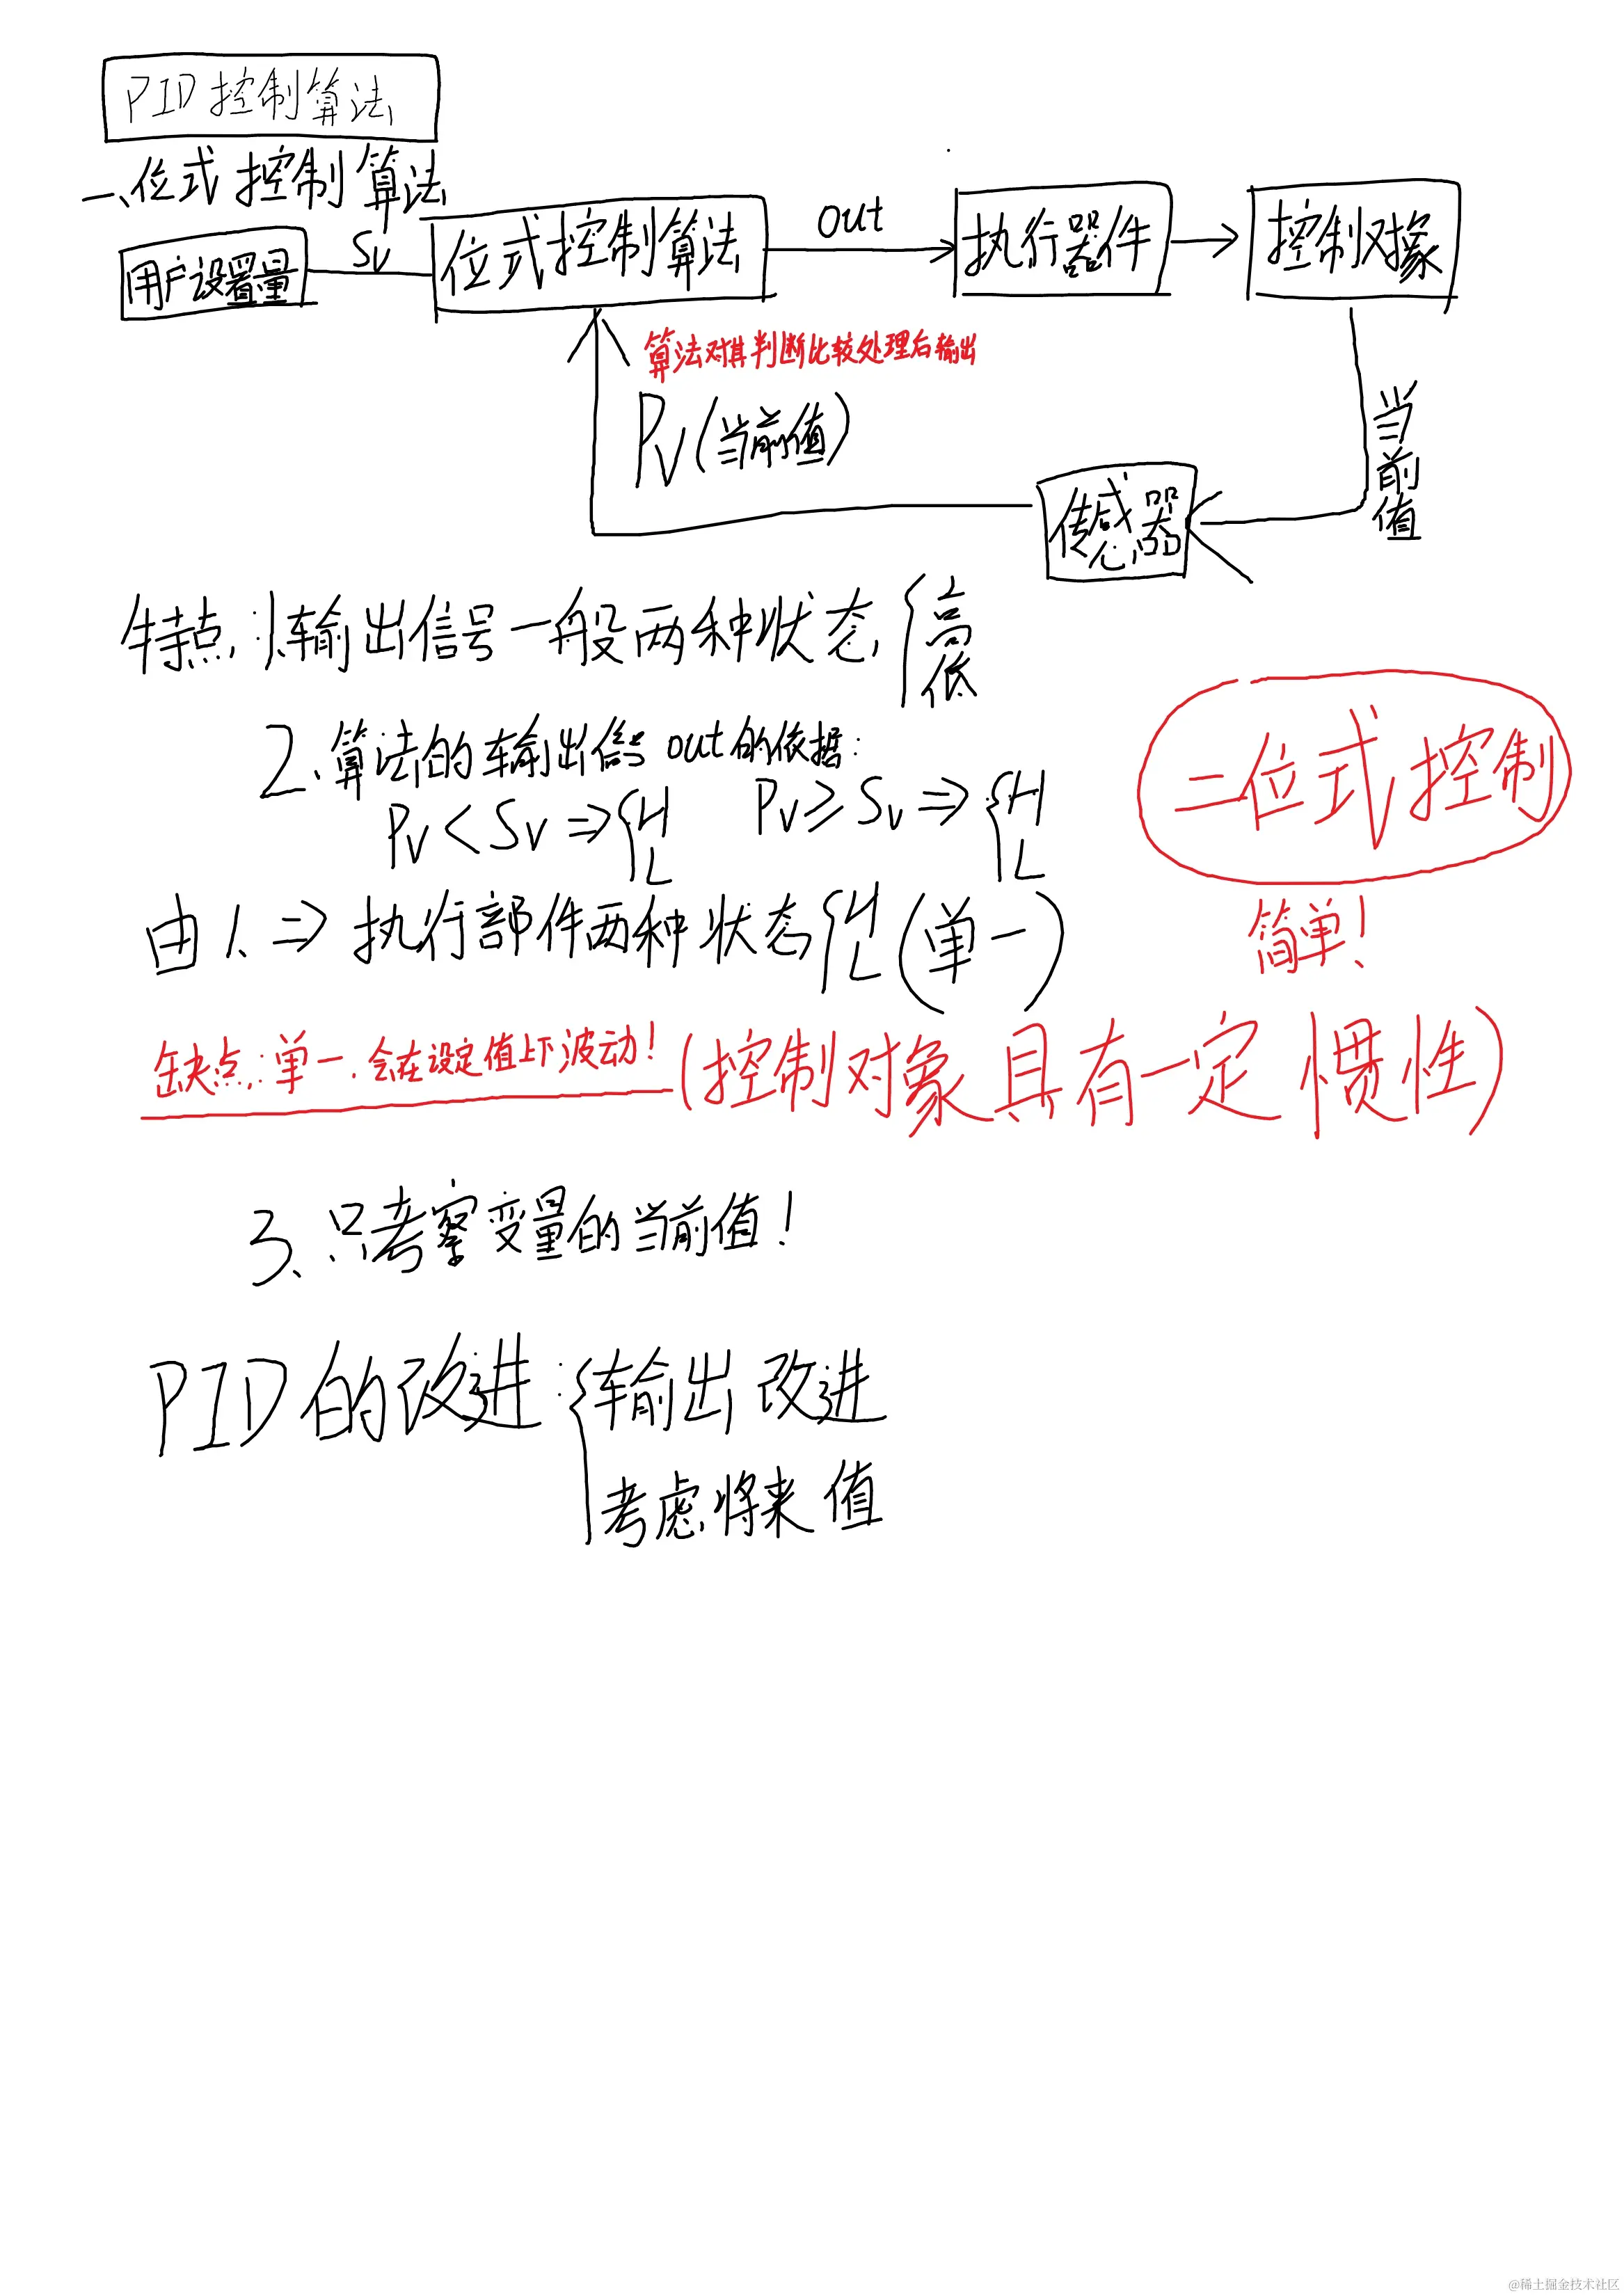 PID控制算法
一、位式控制算法
用户设置量 Sv 位式控制算法 out 执行器件 控制对象
算法对其判断比较处理后输出
Pv(当前值)
当前值
传感器
特点:1.输出信号一般两种状态{高
低
2.算法的输出信号out的依据:
Pv<Sv⇒{H Pv≥Sv⇒{H
L L
二位式控制
由1.⇒执行部件两种状态{H (单一)
L
简单!
缺点:单一.会在设定值上下波动!(控制对象具有一定惯性)
3、只考察变量的当前值!
PID的改进:{输出改进
考虑将来值
@稀土掘金技术社区